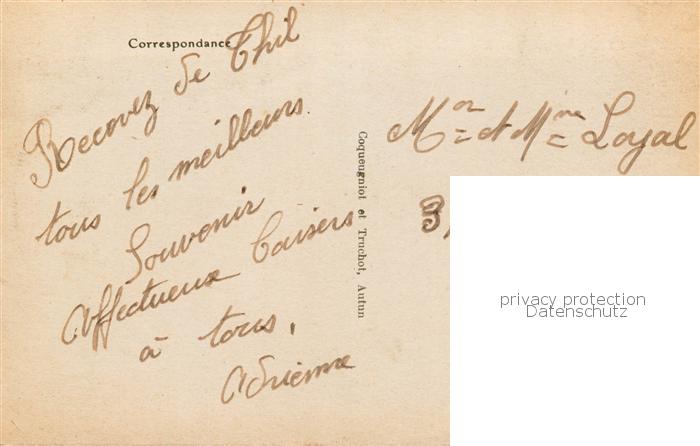 Correspondance
Recevez de Thil
tous les meilleurs
Souvenir
Affectueux baisers
à tous,
Adrienne
Coqueugniot et Truchot, Autun
Mon et Mme Loyal
3,
privacy protection
Datenschutz